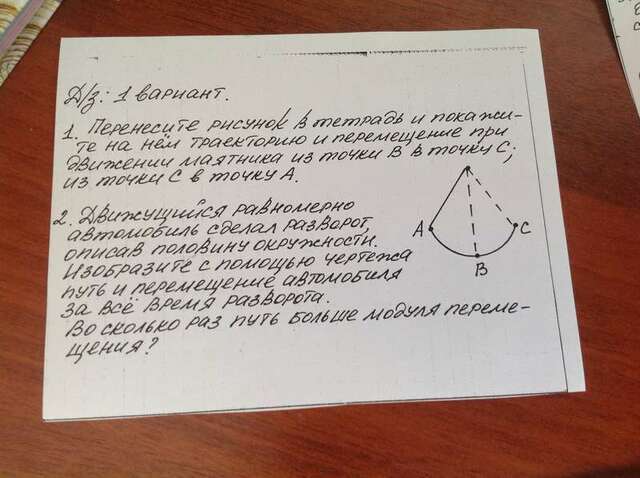 Д/з: 1 вариант.
1. Перенесите рисунок в тетрадь и покажи-
те на нём траекторию и перемещение при
движении маятника из точки В в точку С;
из точки С в точку А.
2. Движущийся равномерно
автомобиль сделал разворот,
описав половину окружности.
Изобразите с помощью чертежа
путь и перемещение автомобиля
за всё время разворота.
Во сколько раз путь больше модуля переме-
щения?
А
В
С